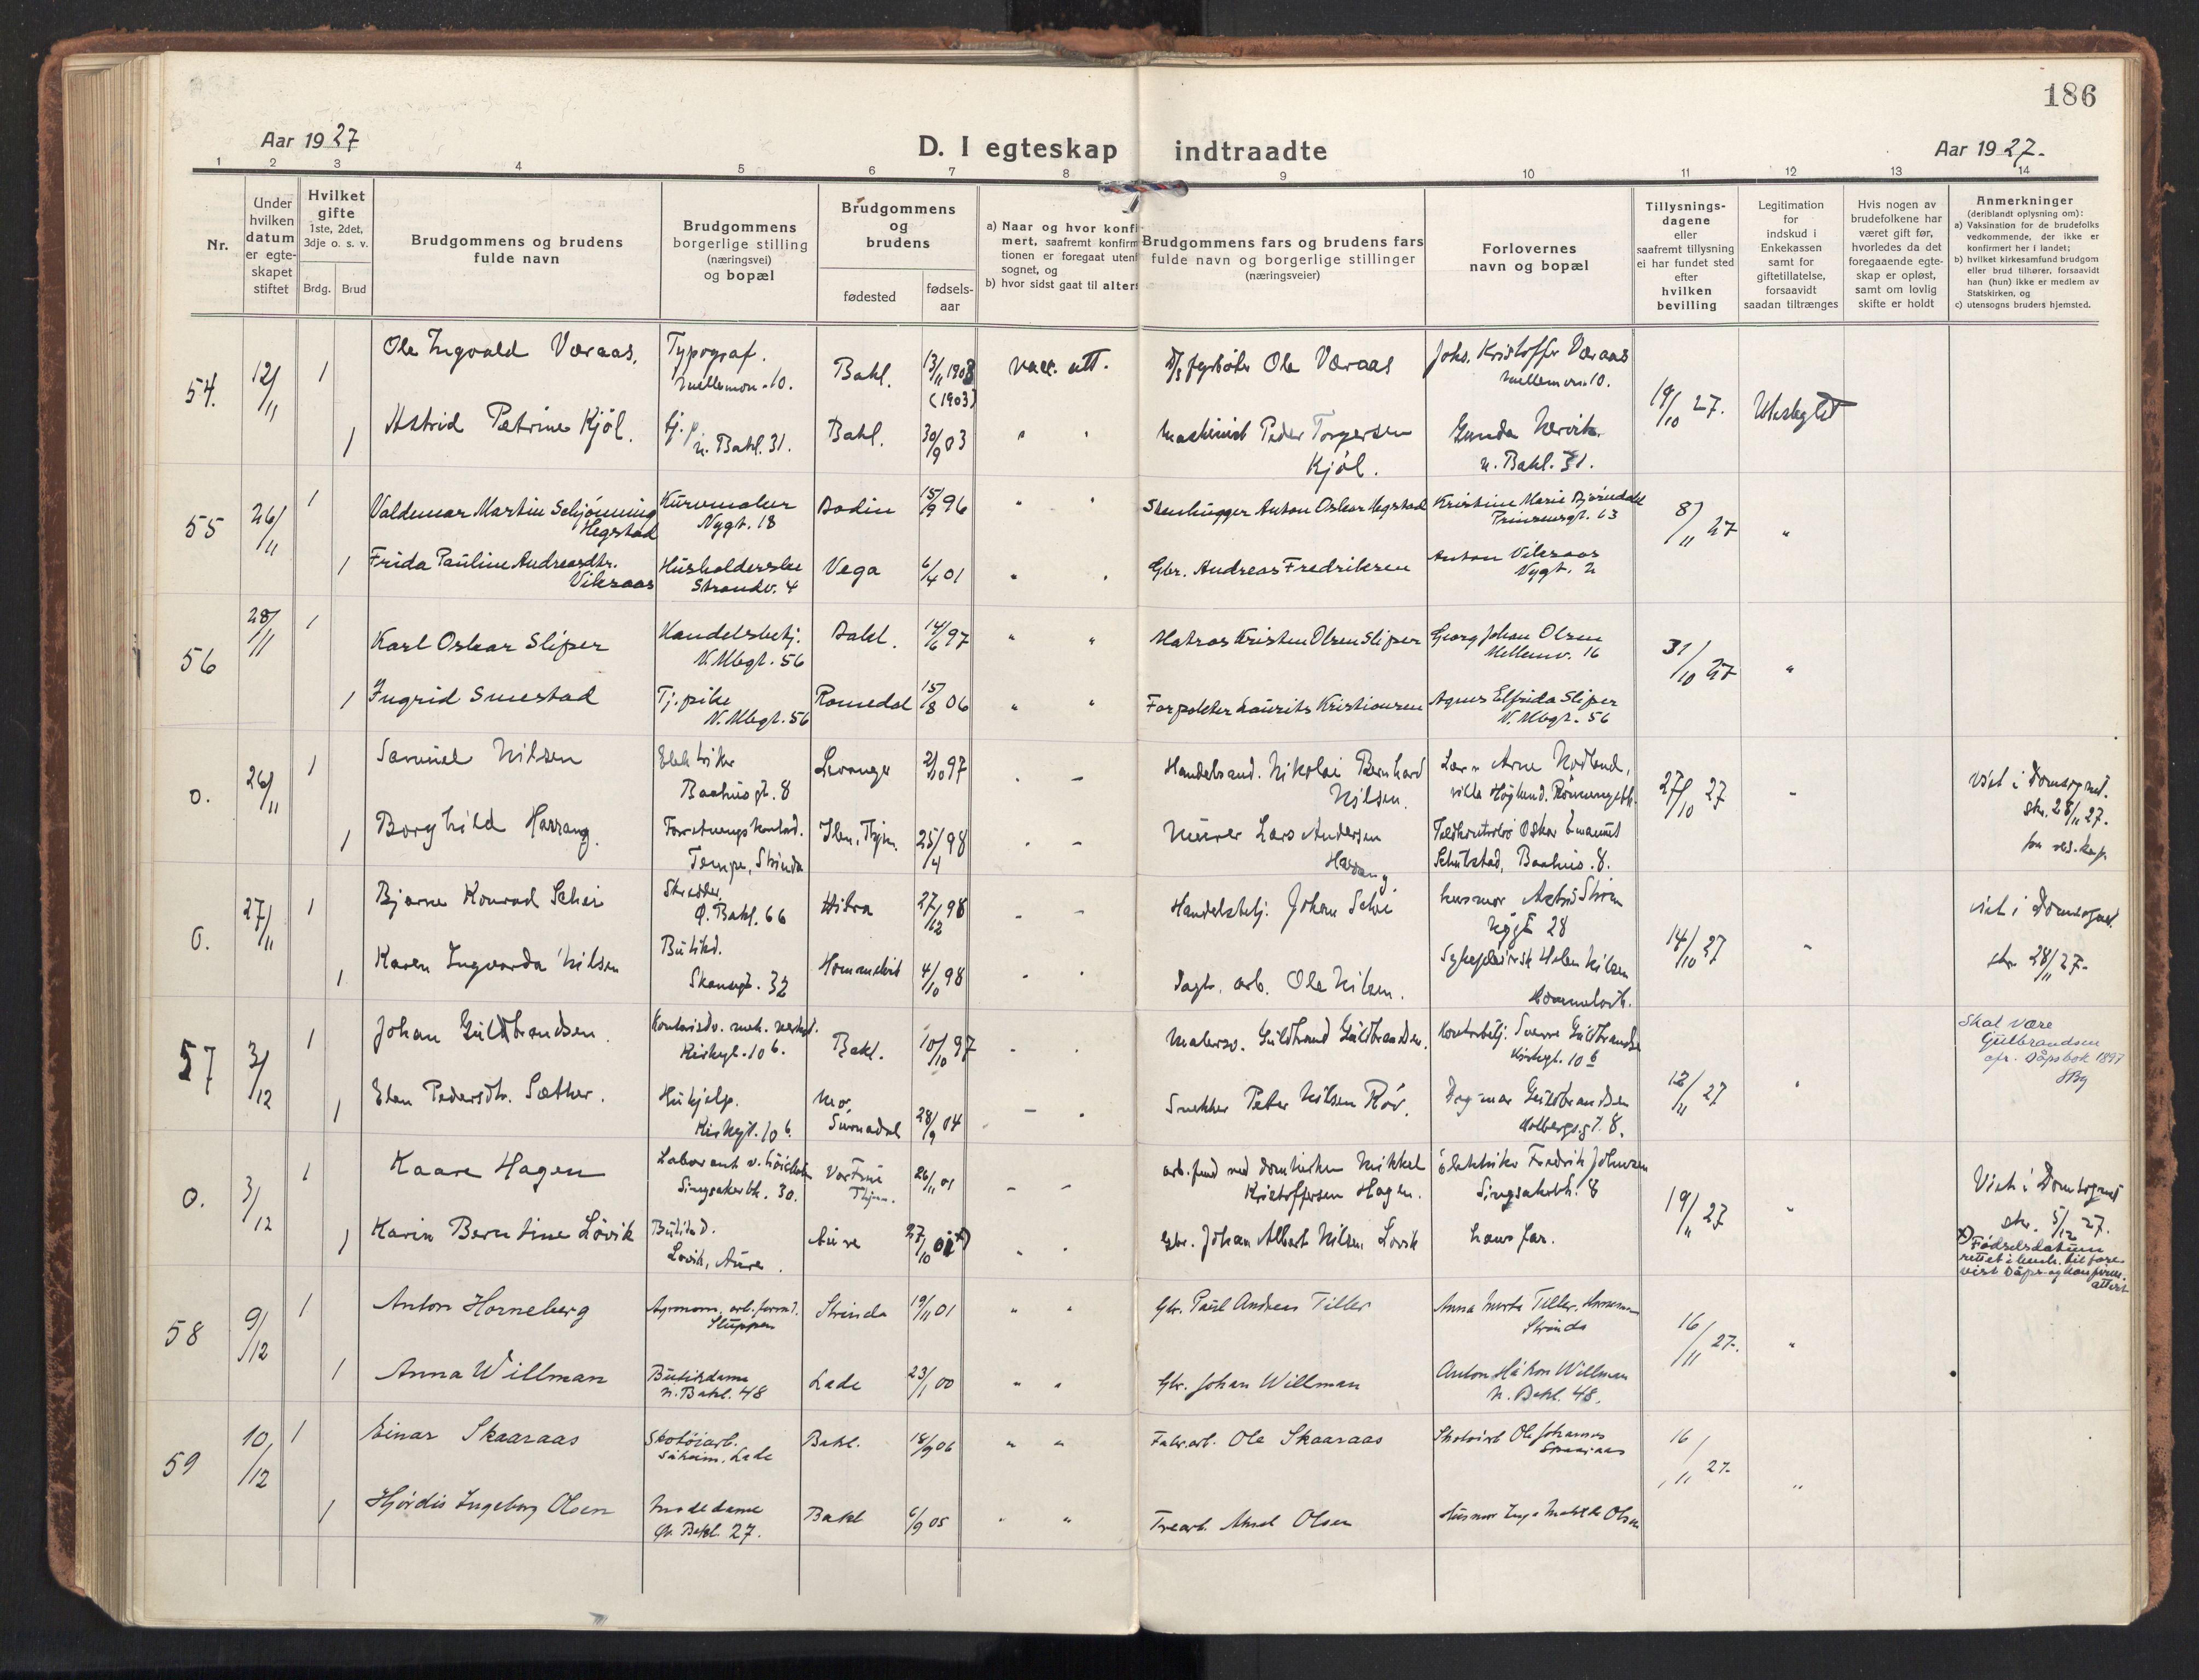 186
Aar 1927
D. I egteskap indtraadte
Aar 1927.
1 2 3 4 5 6 7 8 9 10 11 12 13 14
Nr.
Under hvilken datum er egteskapet stiftet
Hvilket gifte 1ste, 2det, 3dje o. s. v.
Brdg. Brud
Brudgommens og brudens fulde navn
Brudgommens borgerlige stilling (næringsvei) og bopæl
Brudgommens og brudens
fødested
fødsels-aar
a) Naar og hvor konfi-
mert, saafremt konfirm
tionen er foregaat uten
sognet, og
b) hvor sidst gaat til alter
Brudgommens fars og brudens fars
fulde navn og borgerlige stillinger
(næringsveier)
Forlovernes
navn og bopæl
Tillysnings-
dagene
eller
saafremt tillysning
ei har fundet sted
efter
hvilken
bevilling
Legitimation
for
indskud i
Enkekassen
samt for
giftetillatelse,
forsaavidt
saadan tiltrænges
Hvis nogen av
brudefolkene har
været gift før,
hvorledes da det
foregaaende egte-
skap er opløst,
samt om lovlig
skifte er holdt
Anmerkninger
(deriblandt oplysning om):
a) Vaksination for de brudefolks
vedkommende, der ikke er
konfirmert her i landet;
b) hvilket kirkesamfund brudgom
eller brud tilhører, forsaavidt
han (hun) ikke er medlem av
Statskirken, og
c) utensogns bruders hjemsted.
54. 12/11 1 Ole Ingvald Væraas. Typograf. Mellemv. 10. Bakl. 13/11 1903 (1903) vacc. att. Fyrbøter Ole Væraas Johs. Kristoffer Væraas Mellemv. 10. 19/10 27.
1 Astrid Petrine Kjöl. Tj.p. n. Bakl. 31. Bakl. 30/9 03 " " Maskinist Peder Torgersen Kjöl. Gunda n. Bakl. 31.
55 26/11 1 Valdemar Martin Schjönning Hegstad Kurvmaker Nygt. 18 Bodin 15/9 96 " " Stenhugger Anton Oskar Hegstad Kristine Marie Bjørndahl Prinsensgt. 63 8/11 27 "
1 Frida Pauline Andreasdtr. Viksaas Husholderske Strandv. 4 Vega 6/4 01 " " Gbr. Andreas Fredriksen Anton Viksaas Nygt. 2
56 28/11 1 Karl Oskar Sliper Handelsbetj. N. Mbgt. 56 Bakl. 14/6 97 " " Matros Kristen Olsen Sliper Georg Johan Olsen Mellemv. 16 31/10 27 "
1 Ingrid Smestad Tj.pike N. Mbgt. 56 Romedal 15/8 06 " " Forpakter Laurits Kristiansen Agnes Elfrida Sliper N. Mbgt. 56
0. 26/11 1 Samuel Nilsen Elektriker Baahusgt. 8 Levanger 2/10 97 Handelsmand. Nikolai Bernhard Nilsen. Arne Nodland, villa Höglund. 27/10 27 Viet i Domsognet. skr. 28/11 27. fra res. kap.
1 Borghild Harrang. Tempe, Strinda Ilen, Thjm. 25/4 98 Murer Lars Andersen Harrang Oskar Emanuel Schulstad, Baahus. 8.
0. 27/11 1 Bjarne Konrad Selvi Skredder, Ø. Bakl. 66 Hitra 27/12 98 Handelsbetj. Johan Selvi husmor Astrid Ström 28 14/10 27 " viet i Domsognet. skr. 28/11 27.
1 Karen Ingvarda Nilsen Butikd. Skansgt. 32 Hommelvik 4/10 98 Dagl. arb. Ole Nilsen. Sykepleierske Helen Nilsen Hommelvik.
57 3/12 1 Johan Guldbrandsen. Kirkegt. 10 b. Bakl. 10/10 97 Malersv. Guldbrand Guldbrandsen. Kontorbetj: Sverre Guldbrandsen Kirkegt. 10 b 12/11 27 " Skal være Gulbrandsen cfr. Dåpsbok 1897 SBg
1 Elen Pedersdtr. Sæther. Huhjelp. Kirkegt. 10 b. Mo, Surnadal 28/9 04 Snekker Peter Nilsen Röv. Dagmar Guldbrandsen Holbergsgt. 8.
0. 3/12 1 Kaare Hagen Laborant v. Singsakerbk. 30. Vor Frue Thjm. 26/11 01 arb. formd ved Domkirken Mikkel Kristoffersen Hagen. Elektriker Fredrik Johnsen Singsakerbk. 8 19/11 27 " Viet i Domsognet skr. 5/12 27.
1 Karin Berntine Lövik Butikd. Lövik, Aure. Aure 27/10 01 x) Gbr. Johan Albert Nilsen Lövik hans far. x) Fødselsdatum rettet i henh. til fore- vist dåps- og konfirm. attest
58 9/12 1 Anton Horneberg Agronom, arb.formd. Sluppen Strinda 19/11 01 " " Gbr. Paul Andreas Tiller Anna Marta Tiller, Strinda 16/11 27. "
1 Anna Willman Butikdame n. Bakl. 48 Lade 23/1 00 " " Gbr. Johan Willman Anton Håkon Willman N. Bakl. 48.
59 10/12 1 Einar Skaaraas Skotöiarb. Lade Bakl. 18/9 06 " " Fabr.arb. Ole Skaaraas Skotöiarb Ole Johannes Skaaraas 16/11 27. "
1 Hjördis Ingeborg Olsen Modedame Ø. Bakl. 27. Bakl 6/9 05 " " Trearb. Olsen Husmor Inga Mathilde Olsen